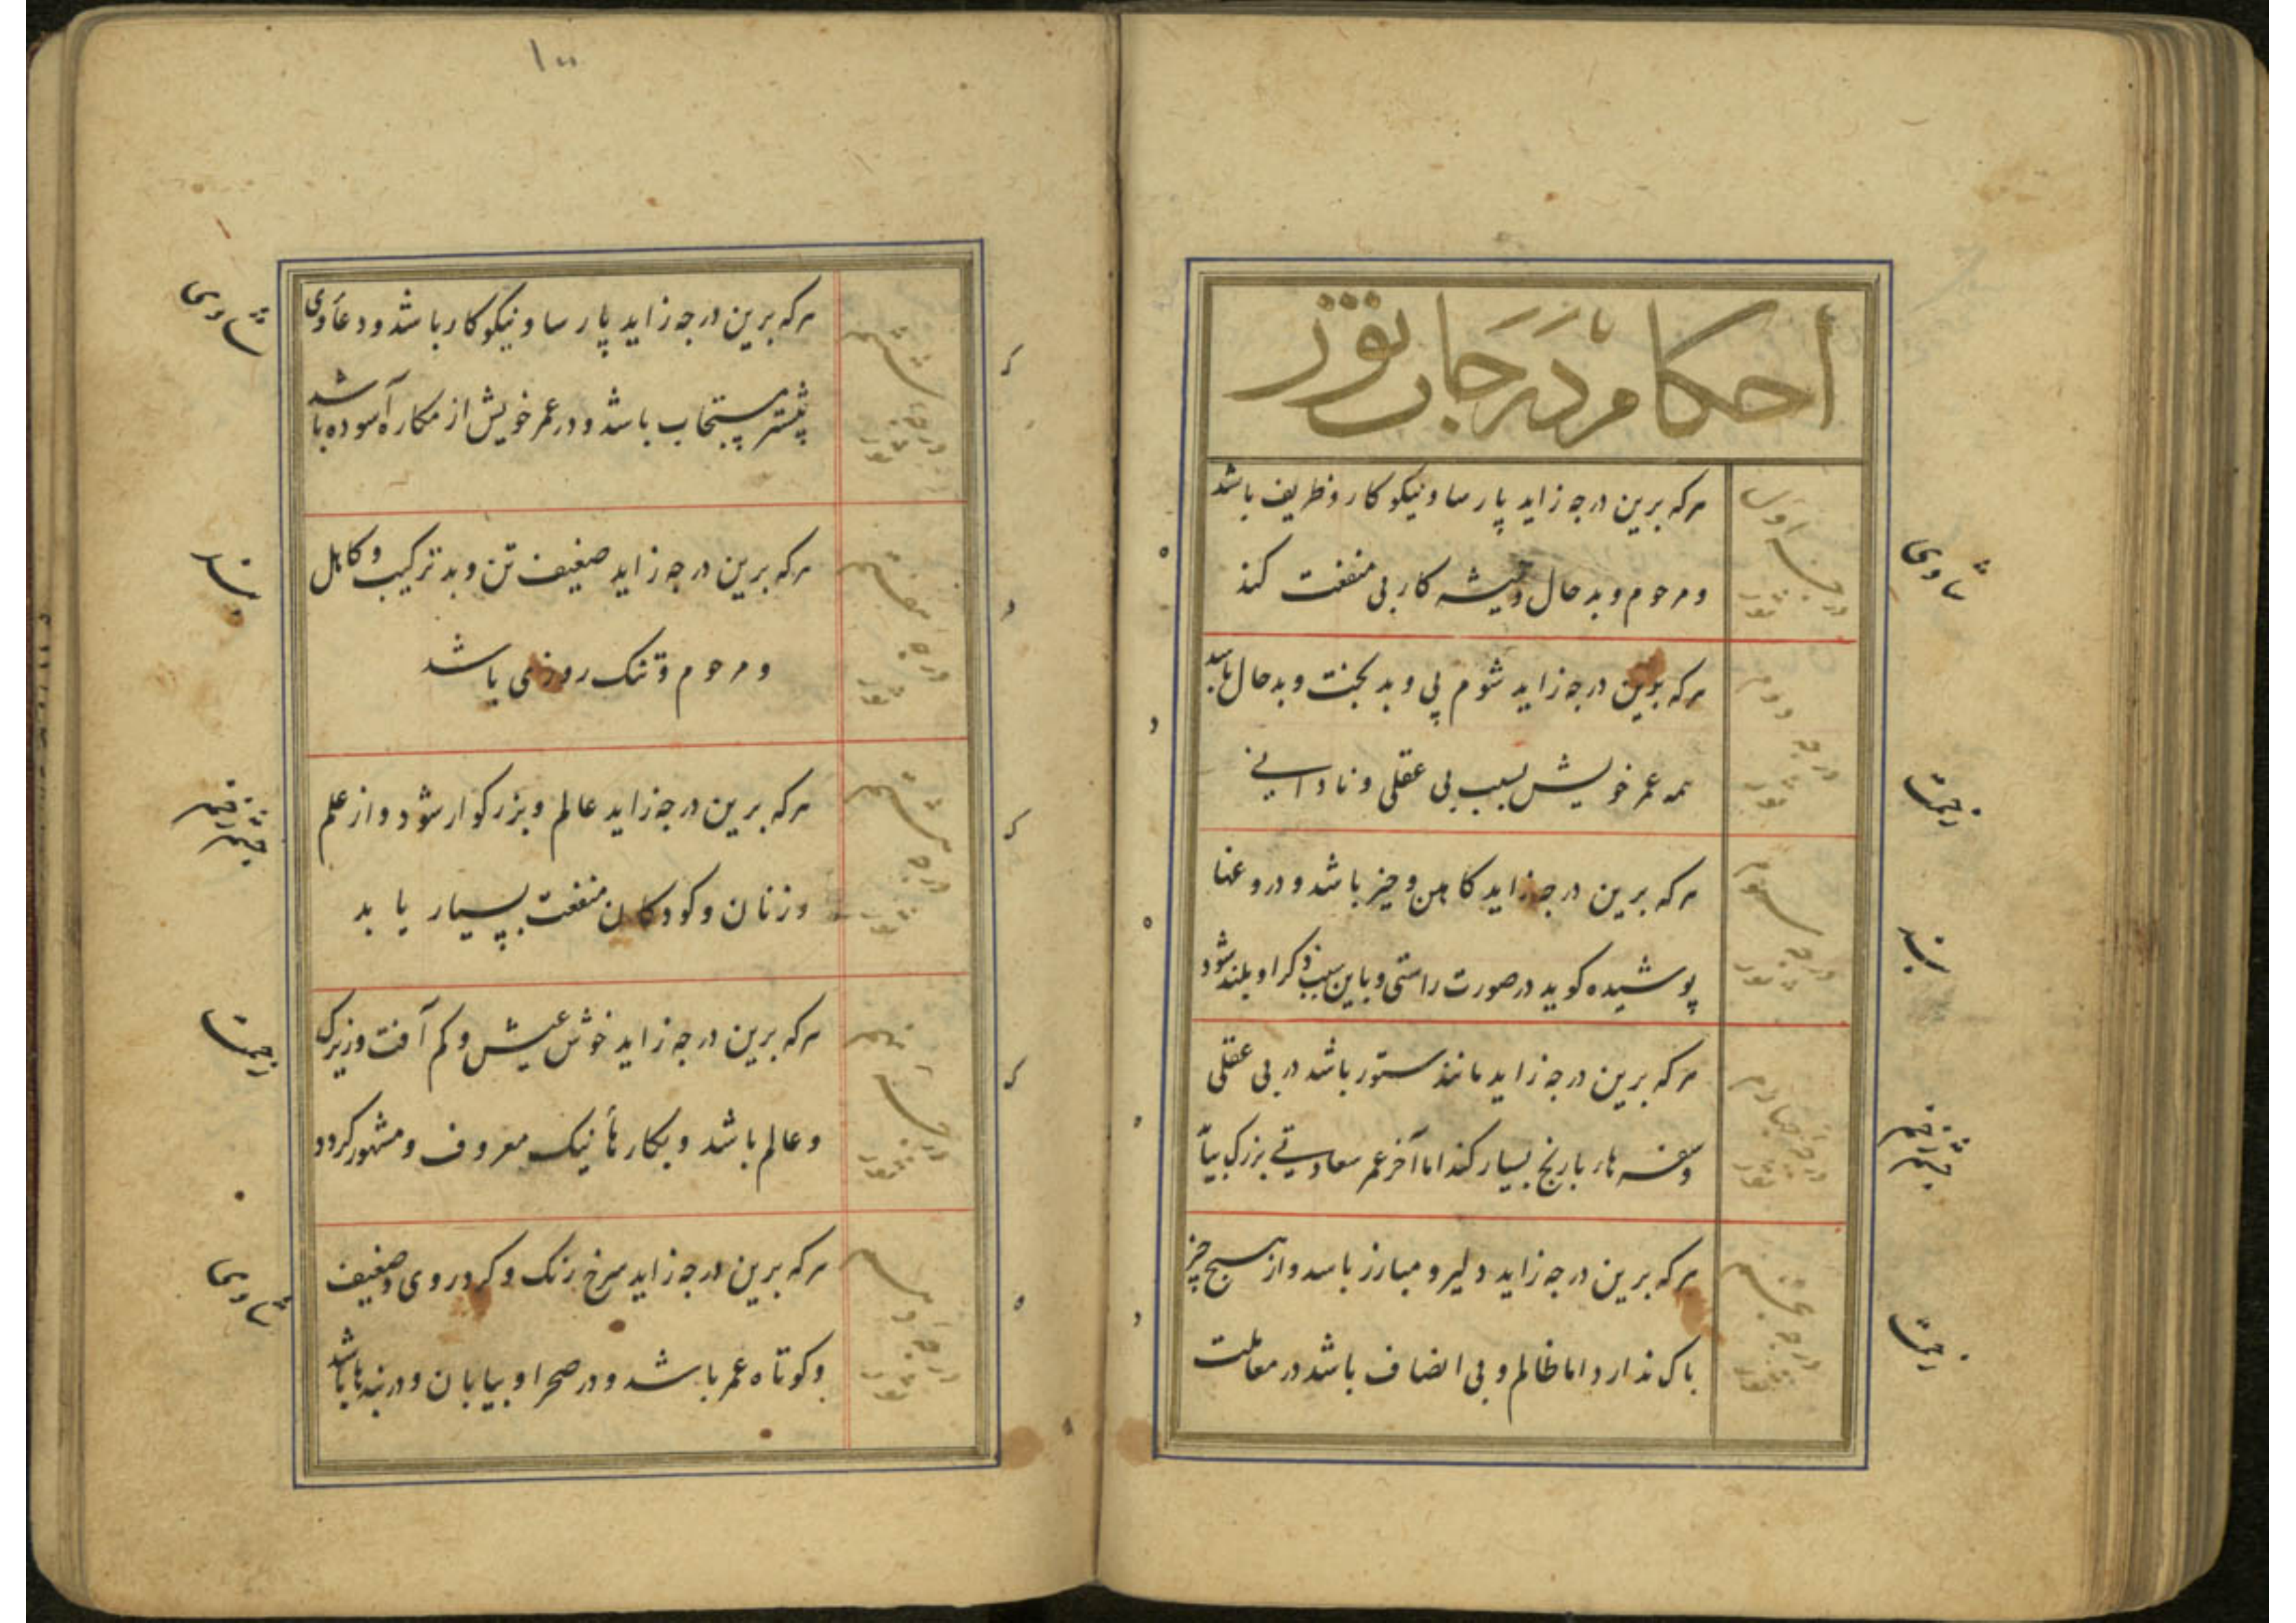 احکام درجات ثور
درجه اول ثور
هرکه برین درجه زاید پارسا و نیکوکار و ظریف باشد
و مرحوم و بدحال و همیشه کار بی منفعت کند
درجه دوم ثور
هرکه برین درجه زاید شوم پی و بدبخت و بدحال باشد
همه عمر خویش بسبب بی عقلی و نادانی
درجه سوم ثور
هرکه برین درجه زاید کاهن و حیز باشد و دروغها
پوشیده کوید در صورت راستی و باین سبب ذکر او بلند شود
درجه چهارم ثور
هرکه برین درجه زاید مانند ستور باشد در بی عقلی
و سفرهاء با رنج بسیار کند اما آخر عمر سعادتی بزرک بیابد
درجه پنجم ثور
هرکه برین درجه زاید دلیر و مبارز باشد و از هیچ چیز
باک ندارد اما ظالم و بی انصاف باشد در معاملت
۱۰۰
درجه ششم ثور
هرکه برین درجه زاید پارسا و نیکوکار باشد و دعاء وی
بیشتر مستجاب باشد و در عمر خویش از مکاره آسوده باشد
درجه هفتم ثور
هرکه برین درجه زاید ضعیف تن و بد ترکیب و کاهل
و مرحوم و تنک روزی باشد
درجه هشتم ثور
هرکه برین درجه زاید عالم و بزرکوار شود و از علم
و زنان و کودکان منفعت بسیار یابد
درجه نهم ثور
هرکه برین درجه زاید خوش عیش و کم آفت و زیرک
و عالم باشد و بکارهاء نیک معروف و مشهور کردد
درجه دهم ثور
هرکه برین درجه زاید سرخ رنک و کرد روی و ضعیف
و کوتاه عمر باشد و در صحرا و بیابان و در بندها باشد